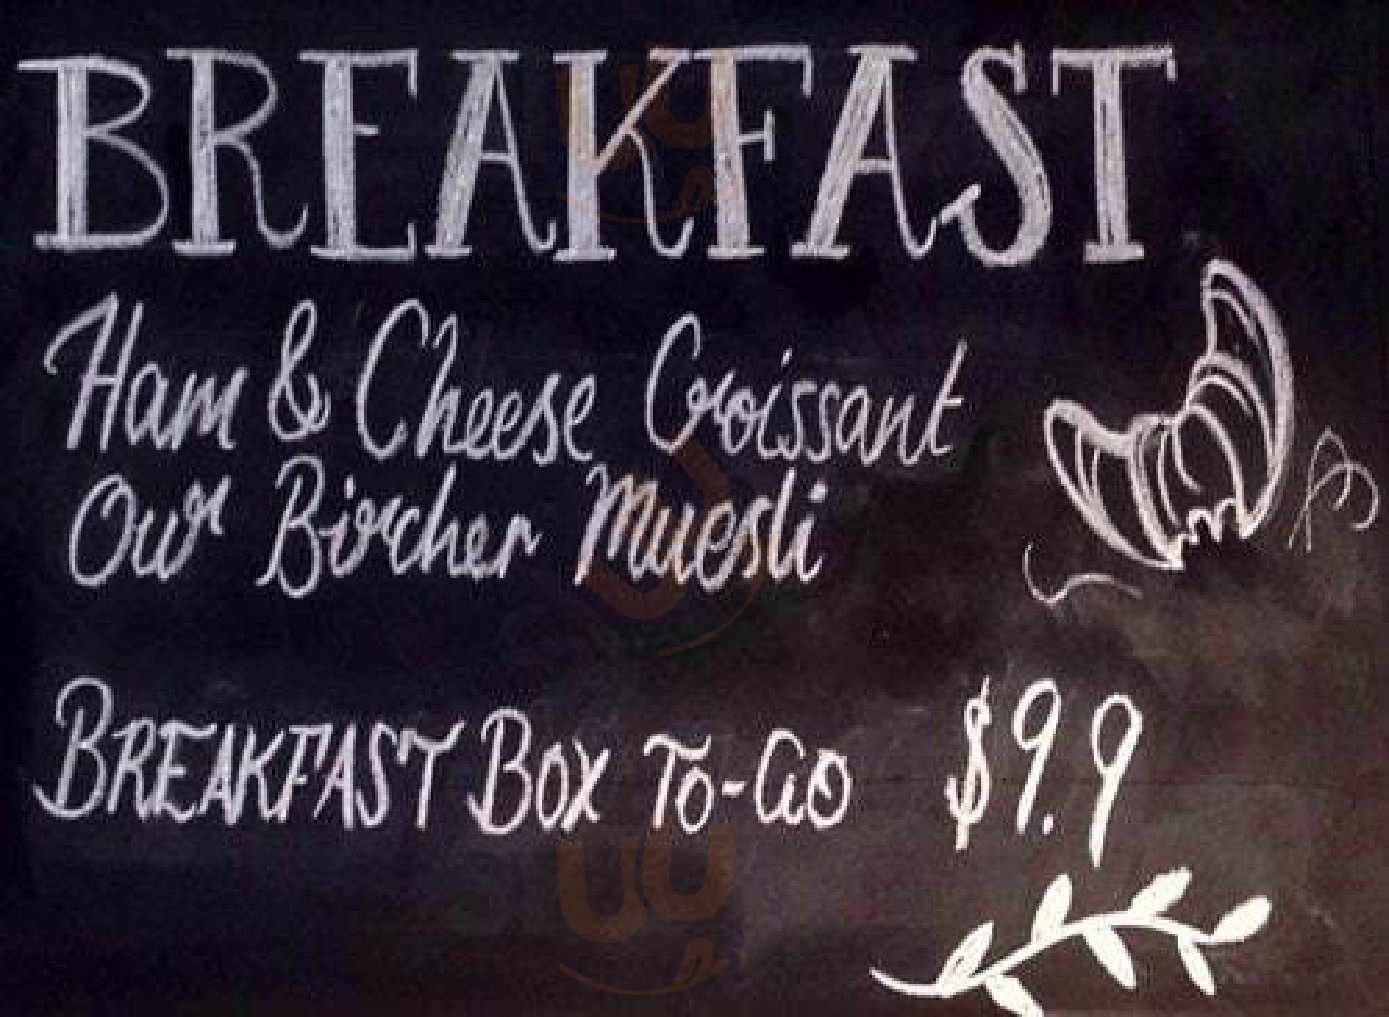 BREAKFAST
Ham & Cheese Croissant
Our Bircher Muesli
BREAKFAST BOX TO-GO $9.9